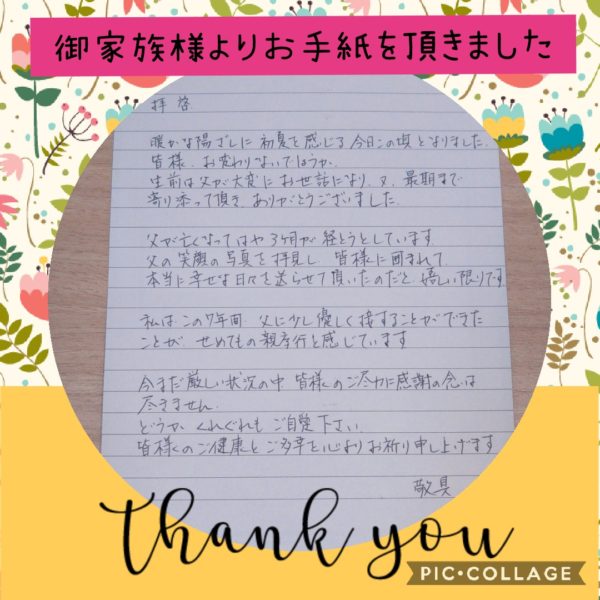 御家族様よりお手紙を頂きました
拝啓
暖かな陽ざしに初夏を感じる今日この頃となりました.
皆様、お変わりないでしょうか.
生前は父が大変にお世話になり、又、最期まで
寄り添って頂き、ありがとうございました.
父が亡くなってはや3ヶ月が経とうとしています
父の笑顔の写真を拝見し 皆様に囲まれて
本当に幸せな日々を送らせて頂いたのだと 嬉しい限りです
私はこの7年間 父に少し優しく接することができた
ことが せめてもの親孝行と感じています
今まだ厳しい状況の中 皆様のご尽力に感謝の念は
尽きません.
どうか くれぐれも ご自愛下さい.
皆様のご健康とご多幸を心よりお祈り申し上げます
敬具
thank you
PIC•COLLAGE